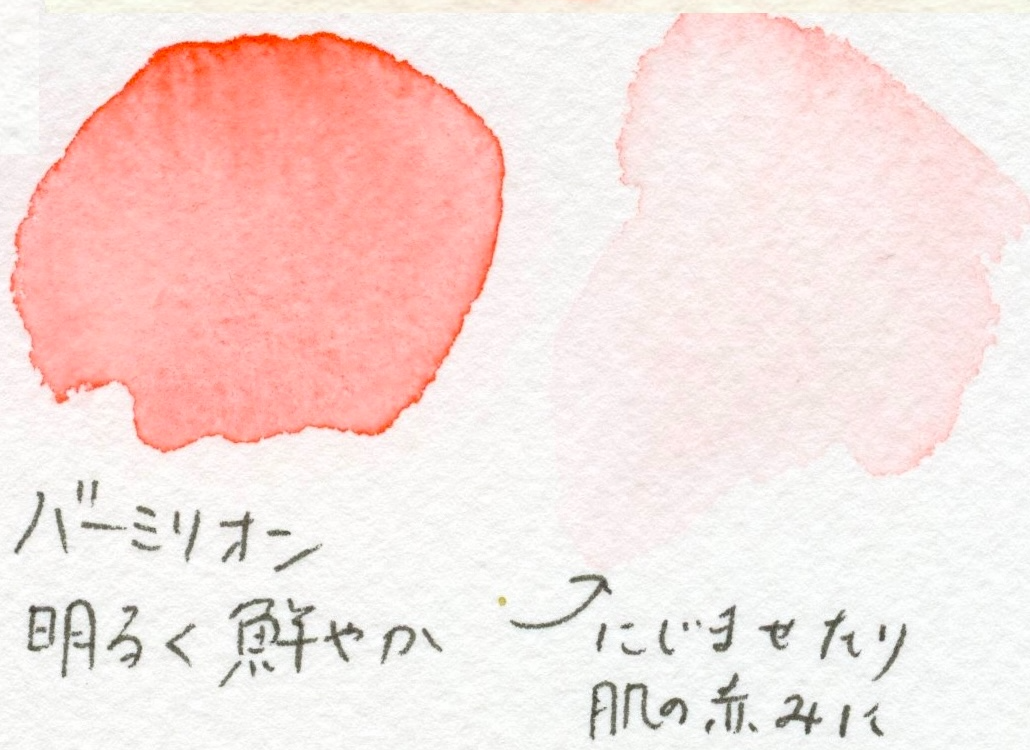 バーミリオン
明るく鮮やか
にじませたり
肌の赤みに